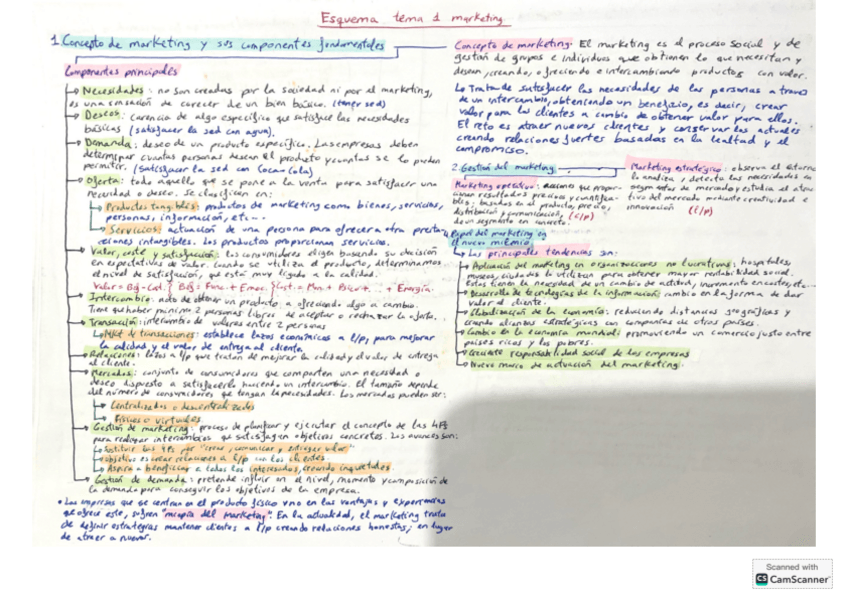 Esquema tema 1 marketing.
1. Concepto de marketing y sus componentes fundamentales
Componentes principales
Necesidades: no son creadas por la sociedad ni por el marketing,
es una sensación de carecer de un bien básico. (tener sed)
Deseos: carencia de algo específico que satisface las necesidades
básicas (satisfacer la sed con agua).
Demanda: deseo de un producto específico. Las empresas deben
determinar cuantas personas desean el producto y cuantas se lo pueden
permitir. (Satisfacer la sed con Coca-Cola)
Oferta: todo aquello que se pone a la venta para satisfacer una
necesidad o deseo. Se clasifican en:
Productos tangibles: productos de marketing como bienes, servicios,
personas, información, etc...
Servicios: actuación de una persona para ofrecer a otra
intangibles. Los productos proporcionan servicios.
Valor, coste y satisfacción: los consumidores eligen basando su decisión
en expectativas de valor. Cuando se utiliza el producto, determinamos
el nivel de satisfacción, que está muy ligado a la calidad.
Intercambio: acto de obtener un producto a ofreciendo algo a cambio.
Tiene que haber mínimo 2 personas libres de aceptar o rechazar la oferta.
Transacción: intercambio de valores entre 2 personas
Mkt de transacciones: establece lazos económicos a l/p, para mejorar
la calidad y el valor de entrega al cliente.
Relaciones: lazos a l/p que tratan de mejorar la calidad y el valor de entrega
al cliente.
Mercados: conjunto de consumidores que comparten una necesidad o
deseo dispuesto a satisfacerlo haciendo un intercambio. El tamaño depende
del número de consumidores que tengan la necesidades. Los mercados pueden ser:
Centralizados o descentralizados
Físicos o virtuales
Gestión de marketing: proceso de planificar y ejecutar el concepto de las 4Ps
para realizar intercambios que satisfagan objetivos concretos. Los avances son:
Sustituir las 4Ps por "crear, comunicar y entregar valor"
objetivo es crear relaciones a l/p con los clientes.
Aspira a beneficiar a todos los interesados, creando inquietudes
Gestión de demanda: pretende influir en el nivel, momento y composición de
la demanda para conseguir los objetivos de la empresa.
• Las empresas que se centran en el producto físico y no en las ventajas y experiencias
que ofrece este, sufren "miopía del marketing". En la actualidad, el marketing trata
de definir estrategias mantener clientes a l/p creando relaciones honestas, en lugar
de atraer a nuevos.
Concepto de marketing. El marketing es el proceso social y de
gestión de grupos e individuos que obtienen lo que necesitan y
desean, creando, ofreciendo e intercambiando productos con valor.
Trata de satisfacer las necesidades de las personas a través
de un intercambio, obteniendo un beneficio, es decir, crear
valor para los clientes a cambio de obtener valor para ellos.
El reto es atraer nuevos clientes y conservar los actuales
creando relaciones fuertes basadas en la lealtad y el
compromiso.
2. Gestión del marketing
Marketing operativo: acciones que
resultados precisos y
basados en el producto, precio,
distribución y comunicación, (c/p)
de un segmento en concreto.
Marketing estratégico: observa el entorno
la analiza y detecta las necesidades
segmentos de mercado y estudia el
del mercado mediante creatividad e
innovación (l/p)
Papel del marketing en
el nuevo milenio
Las principales tendencias son:
Aplicación del marketing en organizaciones no lucrativas: hospitales,
museos, ciudades lo utilizan para obtener mayor rentabilidad social.
Estas tienen la necesidad de un cambio de actitud, incremento en costes, etc...
Desarrollo de tecnologías de la información: cambio en la forma de dar
valor al cliente.
Globalización de la economía: reduciendo distancias geográficas y
creando alianzas estratégicas con compañías de otros países.
Cambio en la economía mundial: promoviendo un comercio justo entre
países ricos y los pobres.
Creciente responsabilidad social de las empresas
Nuevo marco de actuación del marketing.
Scanned with
CS CamScanner